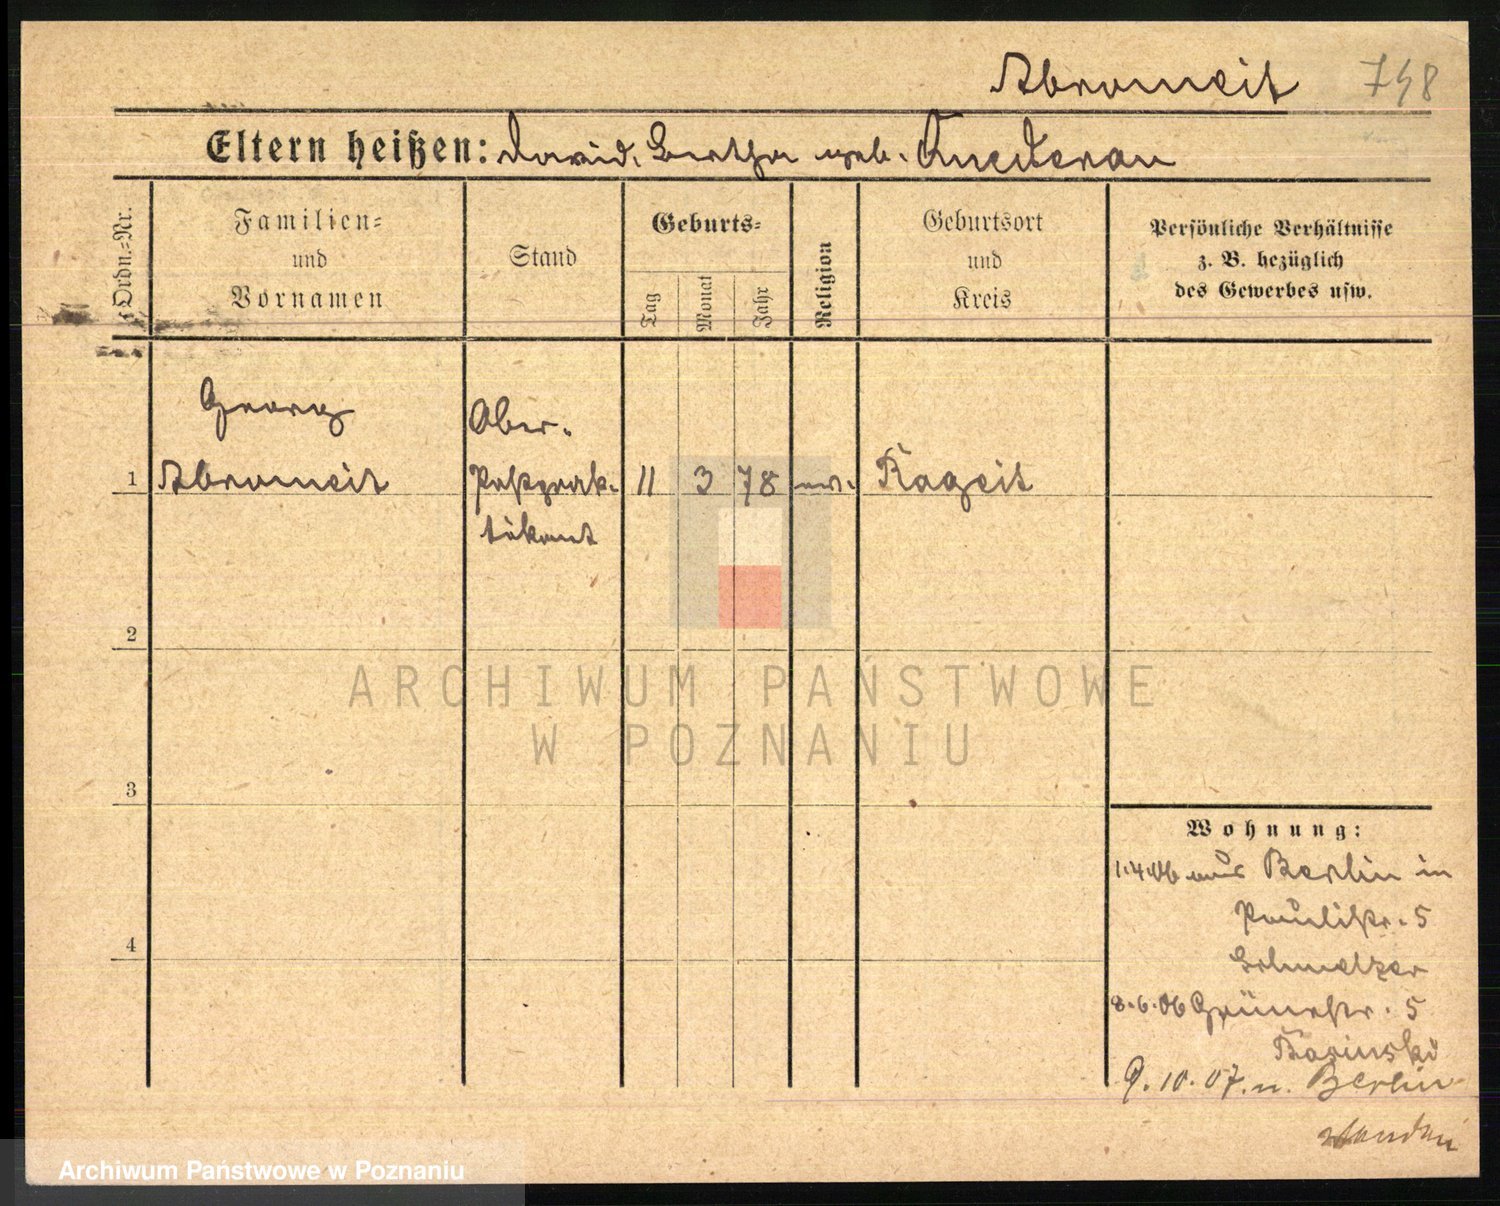 Abromeit 748
Eltern heißen: David, Bertha geb.
Ordn.-Nr.
Familien-
und
Vornamen
Stand
Geburts-
Tag
Monat
Jahr
Religion
Geburtsort
und
Kreis
Persönliche Verhältnisse
z. B. bezüglich
des Gewerbes usw.
Georg
Abromeit
Ober-
Postprak-
tikant
1
11 3 78 ev. Ragnit
2
3
4
Wohnung:
1.4.06 aus Berlin in
Paulistr. 5
Schmelzer
8.6.06 Grünestr. 5
9.10.07. n. Berlin
ARCHIWUM PAŃSTWOWE
W POZNANIU
Archiwum Państwowe w Poznaniu